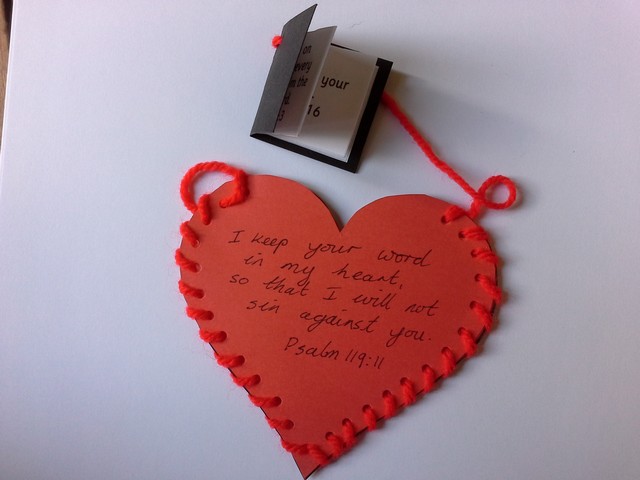 on
every
the
your
16
I keep your word
in my heart,
so that I will not
sin against you.
Psalm 119:11